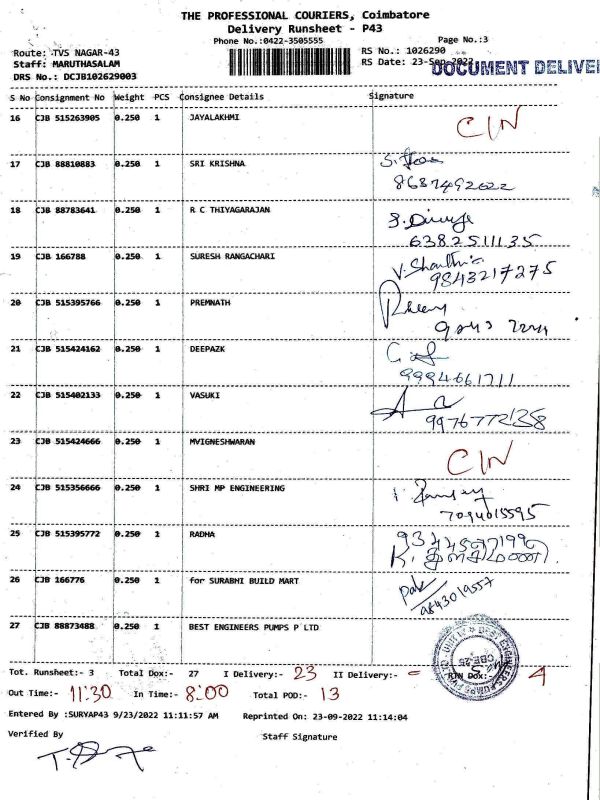 THE PROFESSIONAL COURIERS, Coimbatore
Delivery Runsheet - P43
Phone No.:0422-3505555
Page No.:3
Route: TVS NAGAR-43
RS No.: 1026290
Staff: MARUTHASALAM
RS Date: 23-Sep-2022
DOCUMENT DELIVE
DRS No.: DCJB102629003
S No Consignment No Weight PCS Consignee Details Signature
16 CJB 515263905 0.250 1 JAYALAKHMI
C/N
17 CJB 88810883 0.250 1 SRI KRISHNA
8637492022
18 CJB 88783641 0.250 1 R C THIYAGARAJAN
6382511135
19 CJB 166788 0.250 1 SURESH RANGACHARI
V. Shanthi
9843217275
20 CJB 515395766 0.250 1 PREMNATH
21 CJB 515424162 0.250 1 DEEPAZK
9994661711
22 CJB 515402133 0.250 1 VASUKI
9976772138
23 CJB 515424666 0.250 1 MVIGNESHWARAN
C/N
24 CJB 515356666 0.250 1 SHRI MP ENGINEERING
7094015595
25 CJB 515395772 0.250 1 RADHA
K. துளசிமணி
26 CJB 166776 0.250 1 for SURABHI BUILD MART
9843019557
27 CJB 88873488 0.250 1 BEST ENGINEERS PUMPS P LTD
Tot. Runsheet:- 3 Total Dox:- 27 I Delivery:- 23 II Delivery:- - RTN Dox:- 4
Out Time:- 11:30 In Time:- 8:00 Total POD:- 13
Entered By :SURYAP43 9/23/2022 11:11:57 AM Reprinted On: 23-09-2022 11:14:04
Verified By
Staff Signature